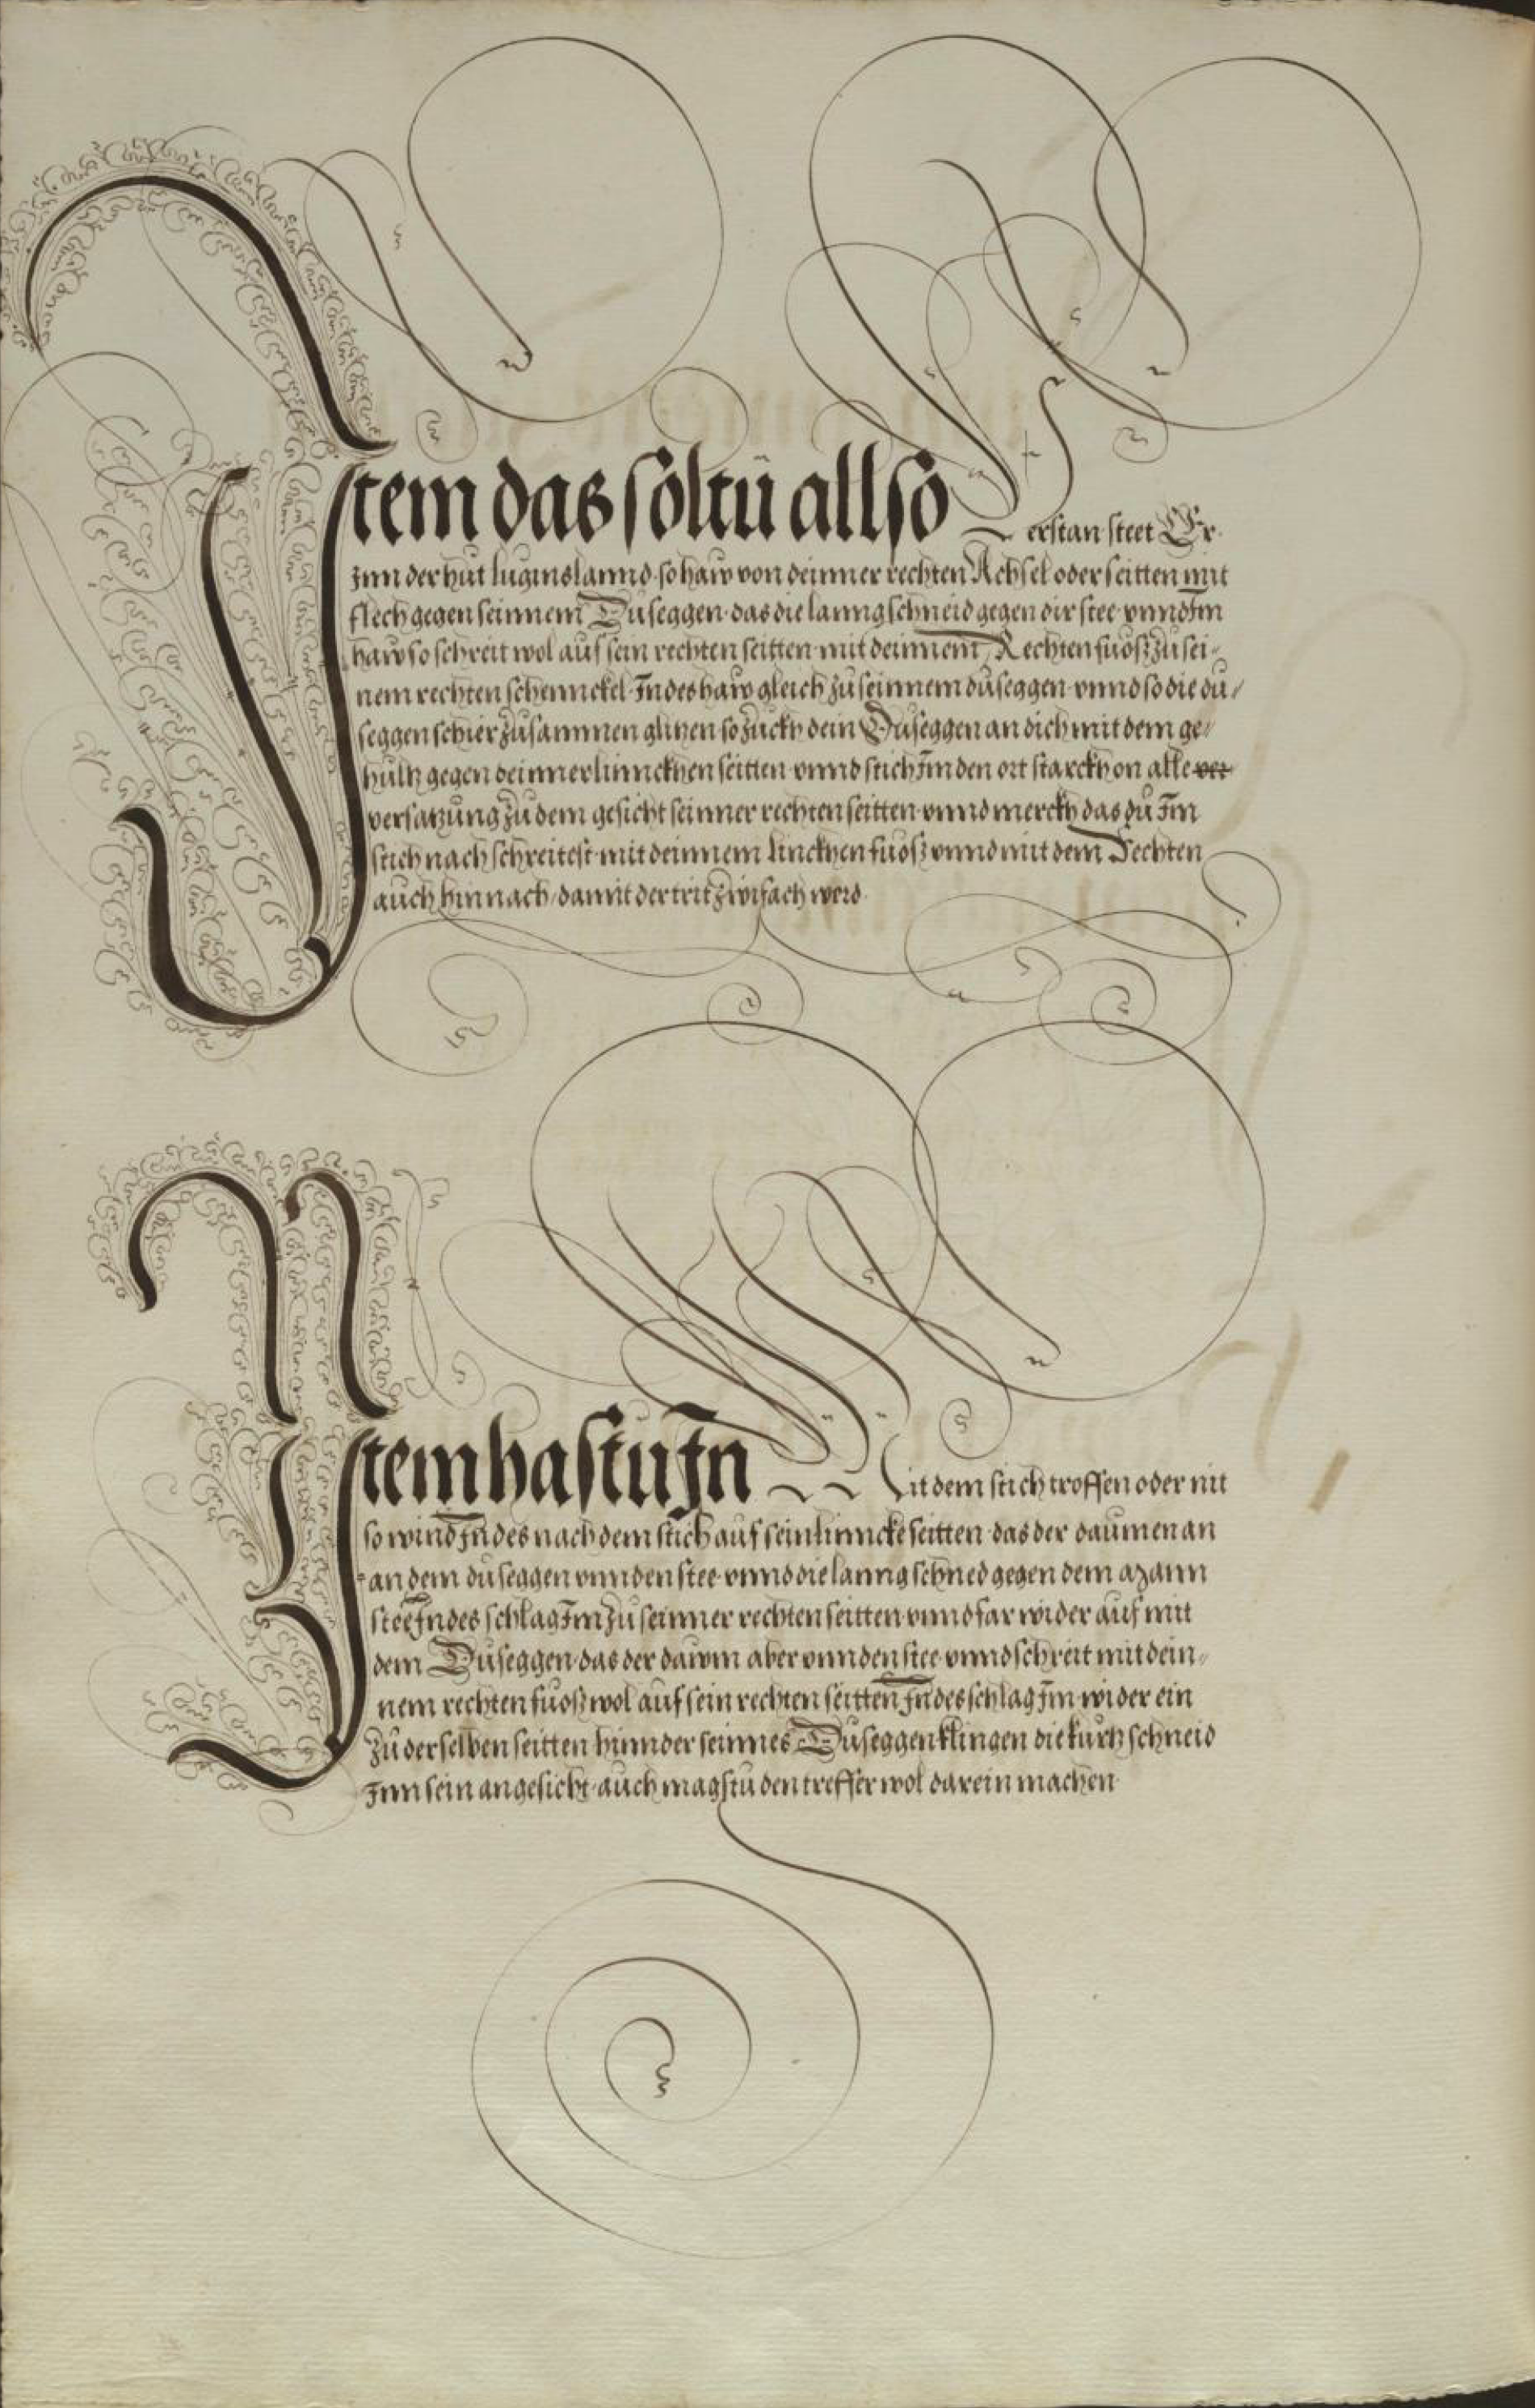 Item das soltu allso Verstan steet Er
Inn der hut luginslannd so haw von deinner rechten Achsel oder seitten mit
flech gegen seinnem Duseggen das die lanng schneid gegen dir stee vnnd Im
haw so schreit wol auf sein rechten seitten mit deinnem Rechten fuosz zu sei-
nem rechten schennckel Indes haw gleich zu seinnem duseggen vnnd so die du/
seggen schier zusammen glitzen so zuckh dein Duseggen an dich mit dem ge/
hultz gegen deinner linnckhen seitten vnnd stich Im den ort starckh on alle ver
versatzung zu dem gesicht seinner rechten seitten vnnd merckh das du Im
stich nach schreitest mit deinnem linckhen fuosz vnnd mit dem Rechten
auch hinnach damit der trit zwifach werd
Item hastu In Mit dem stich troffen oder nit
so wind Indes nach dem stich auf sein linncke seitten das der daumen an
an dem duseggen vnnden stee vnnd die lanng schneid gegen dem Mann
stee Indes schlag Im zu seinner rechten seitten vnnd far wider auf mit
dem Duseggen das der dawm aber vnnden stee vnnd schreit mit dein/
nem rechten fuosz wol auf sein rechten seitten Indes schlag Im wider ein
zu derselben seitten hinnder seinnes Duseggen klingen die kurtz schneid
Inn sein angesicht auch magstu den treffer wol darein machen